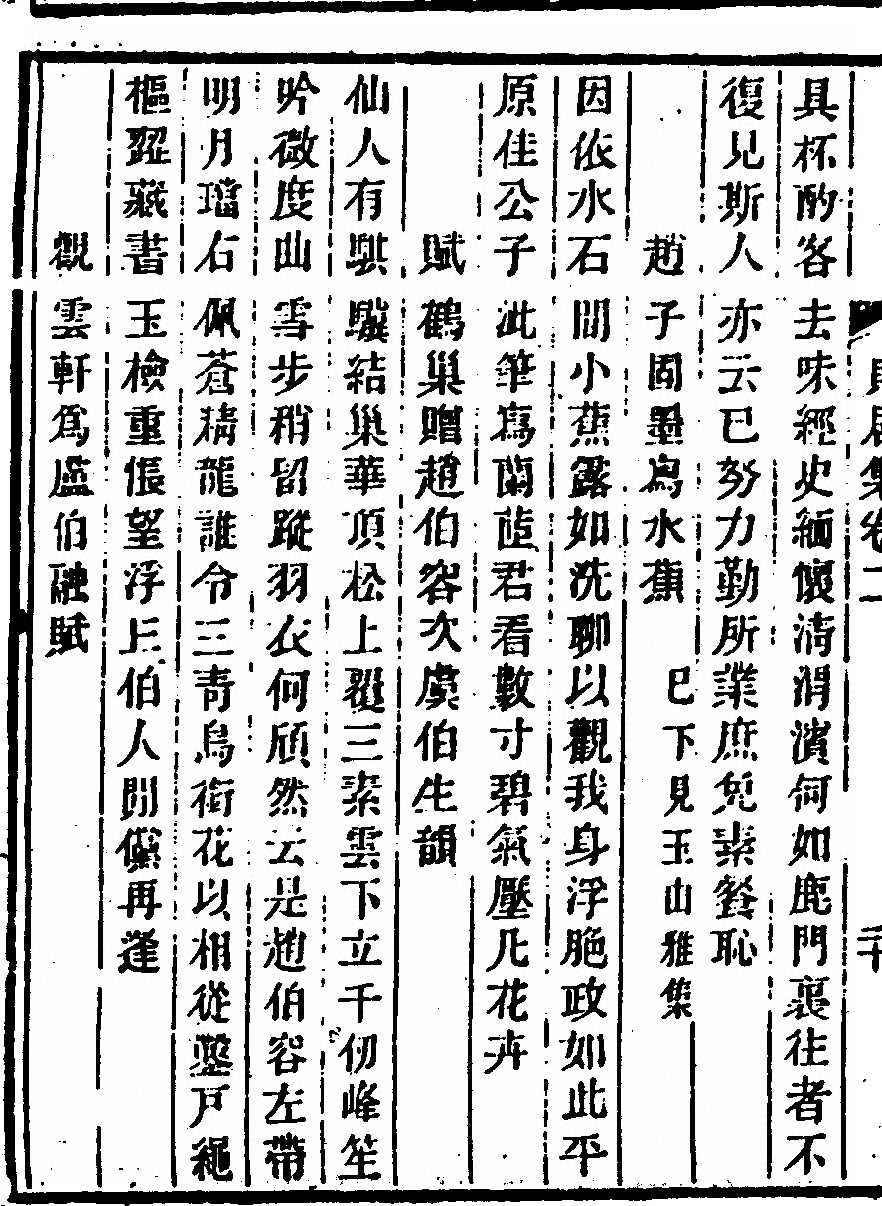 具杯酌客去味經史緬懷清渭濱何如鹿門裏往者不
復見斯人亦云已努力勤所業庶免素餐恥
趙子固墨寫水蕉 已下見玉山雅集
因依水石間小蕉露如洗聊以觀我身浮脆政如此平
原佳公子泚筆寫蘭茝君看數寸碧氣壓几花卉
賦鶴巢贈趙伯容次虞伯生韻
仙人有騏驥結巢華頂松上從三素雲下立千仞峰笙
吟微度曲雪步稍留蹤羽衣何頎然云是趙伯容左帶
明月璫右佩蒼精龍誰令三靑鳥銜花以相從鑿戸繩
樞罷藏書玉檢重悵望浮丘伯人間儻再逢
觀雲軒爲盧伯融賦